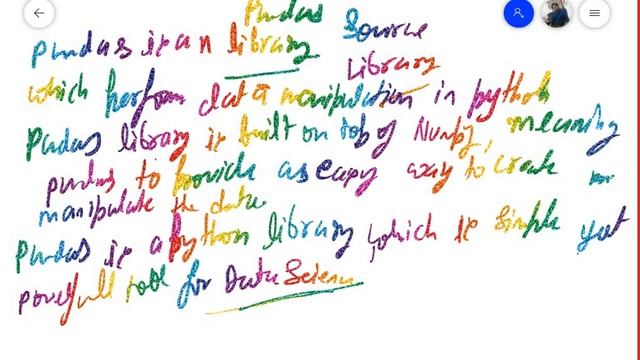 Pandas
Pandas is an library Source
Library
which perform data manipulation in python
Pandas library is built on top of Numpy, meaning
pandas to provide as easy way to create
manipulate the data
Pandas is a python library which is simple yet
powerfull tool for Data Science